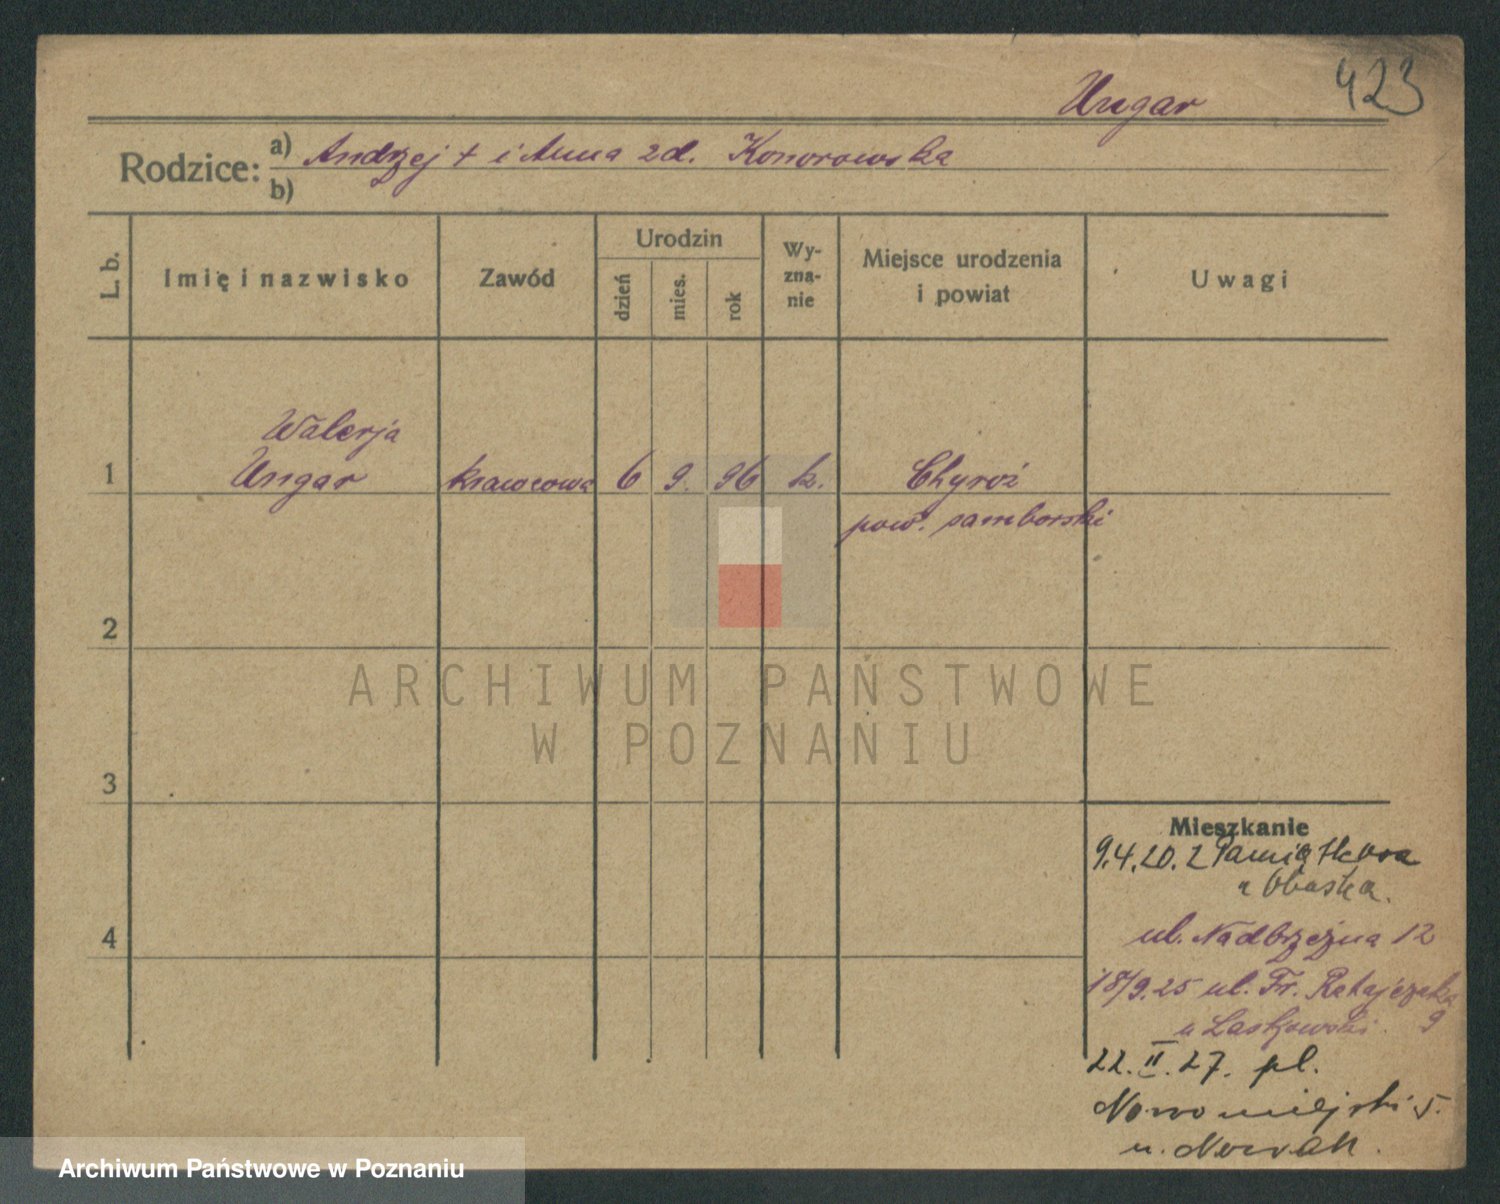 423
Ungar
Rodzice:
a) Andrzej + i Anna 2d. Konorowska
b)
L. b.
Imię i nazwisko
Zawód
Urodzin
dzień
mies.
rok
Wy-
zna-
nie
Miejsce urodzenia
i powiat
Uwagi
Walerja
1 Ungar krawcowa 6 9. 96 k. Chyrów
pow. samborski
2
ARCHIWUM PAŃSTWOWE
W POZNANIU
3
Mieszkanie
9.4.20. 2 Pamiątkowa
u
4
ul. Nadbrzeżna 12
18/9.25 ul. Fr. Ratajczaka
u Laskowski. 9
22.II.27. pl.
Nowomiejski 5.
u. Nowak.
Archiwum Państwowe w Poznaniu